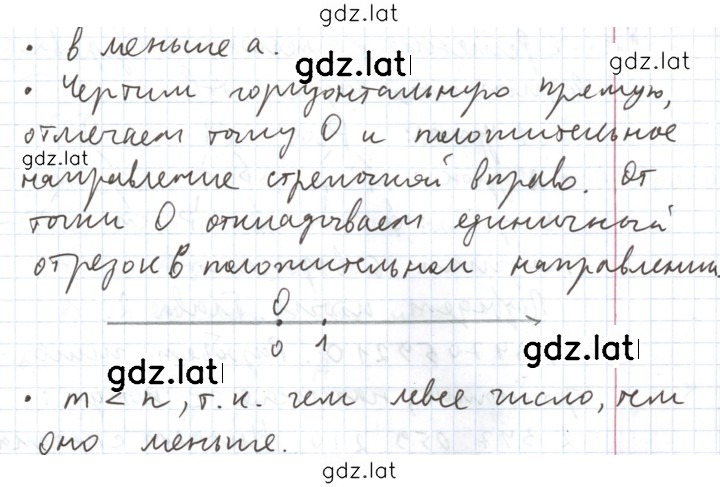 gdz.lat
• в меньше а.
gdz.lat
gdz.lat
• Чертим горизонтальную прямую,
отмечаем точку О и положительное
gdz.lat
направление стрелочкой вправо. От
точки О откладываем единичный
отрезок в положительном направлении
О
0 1
gdz.lat
gdz.lat
• m < n, т.к. чем левее число, тем
оно меньше.
gdz.lat